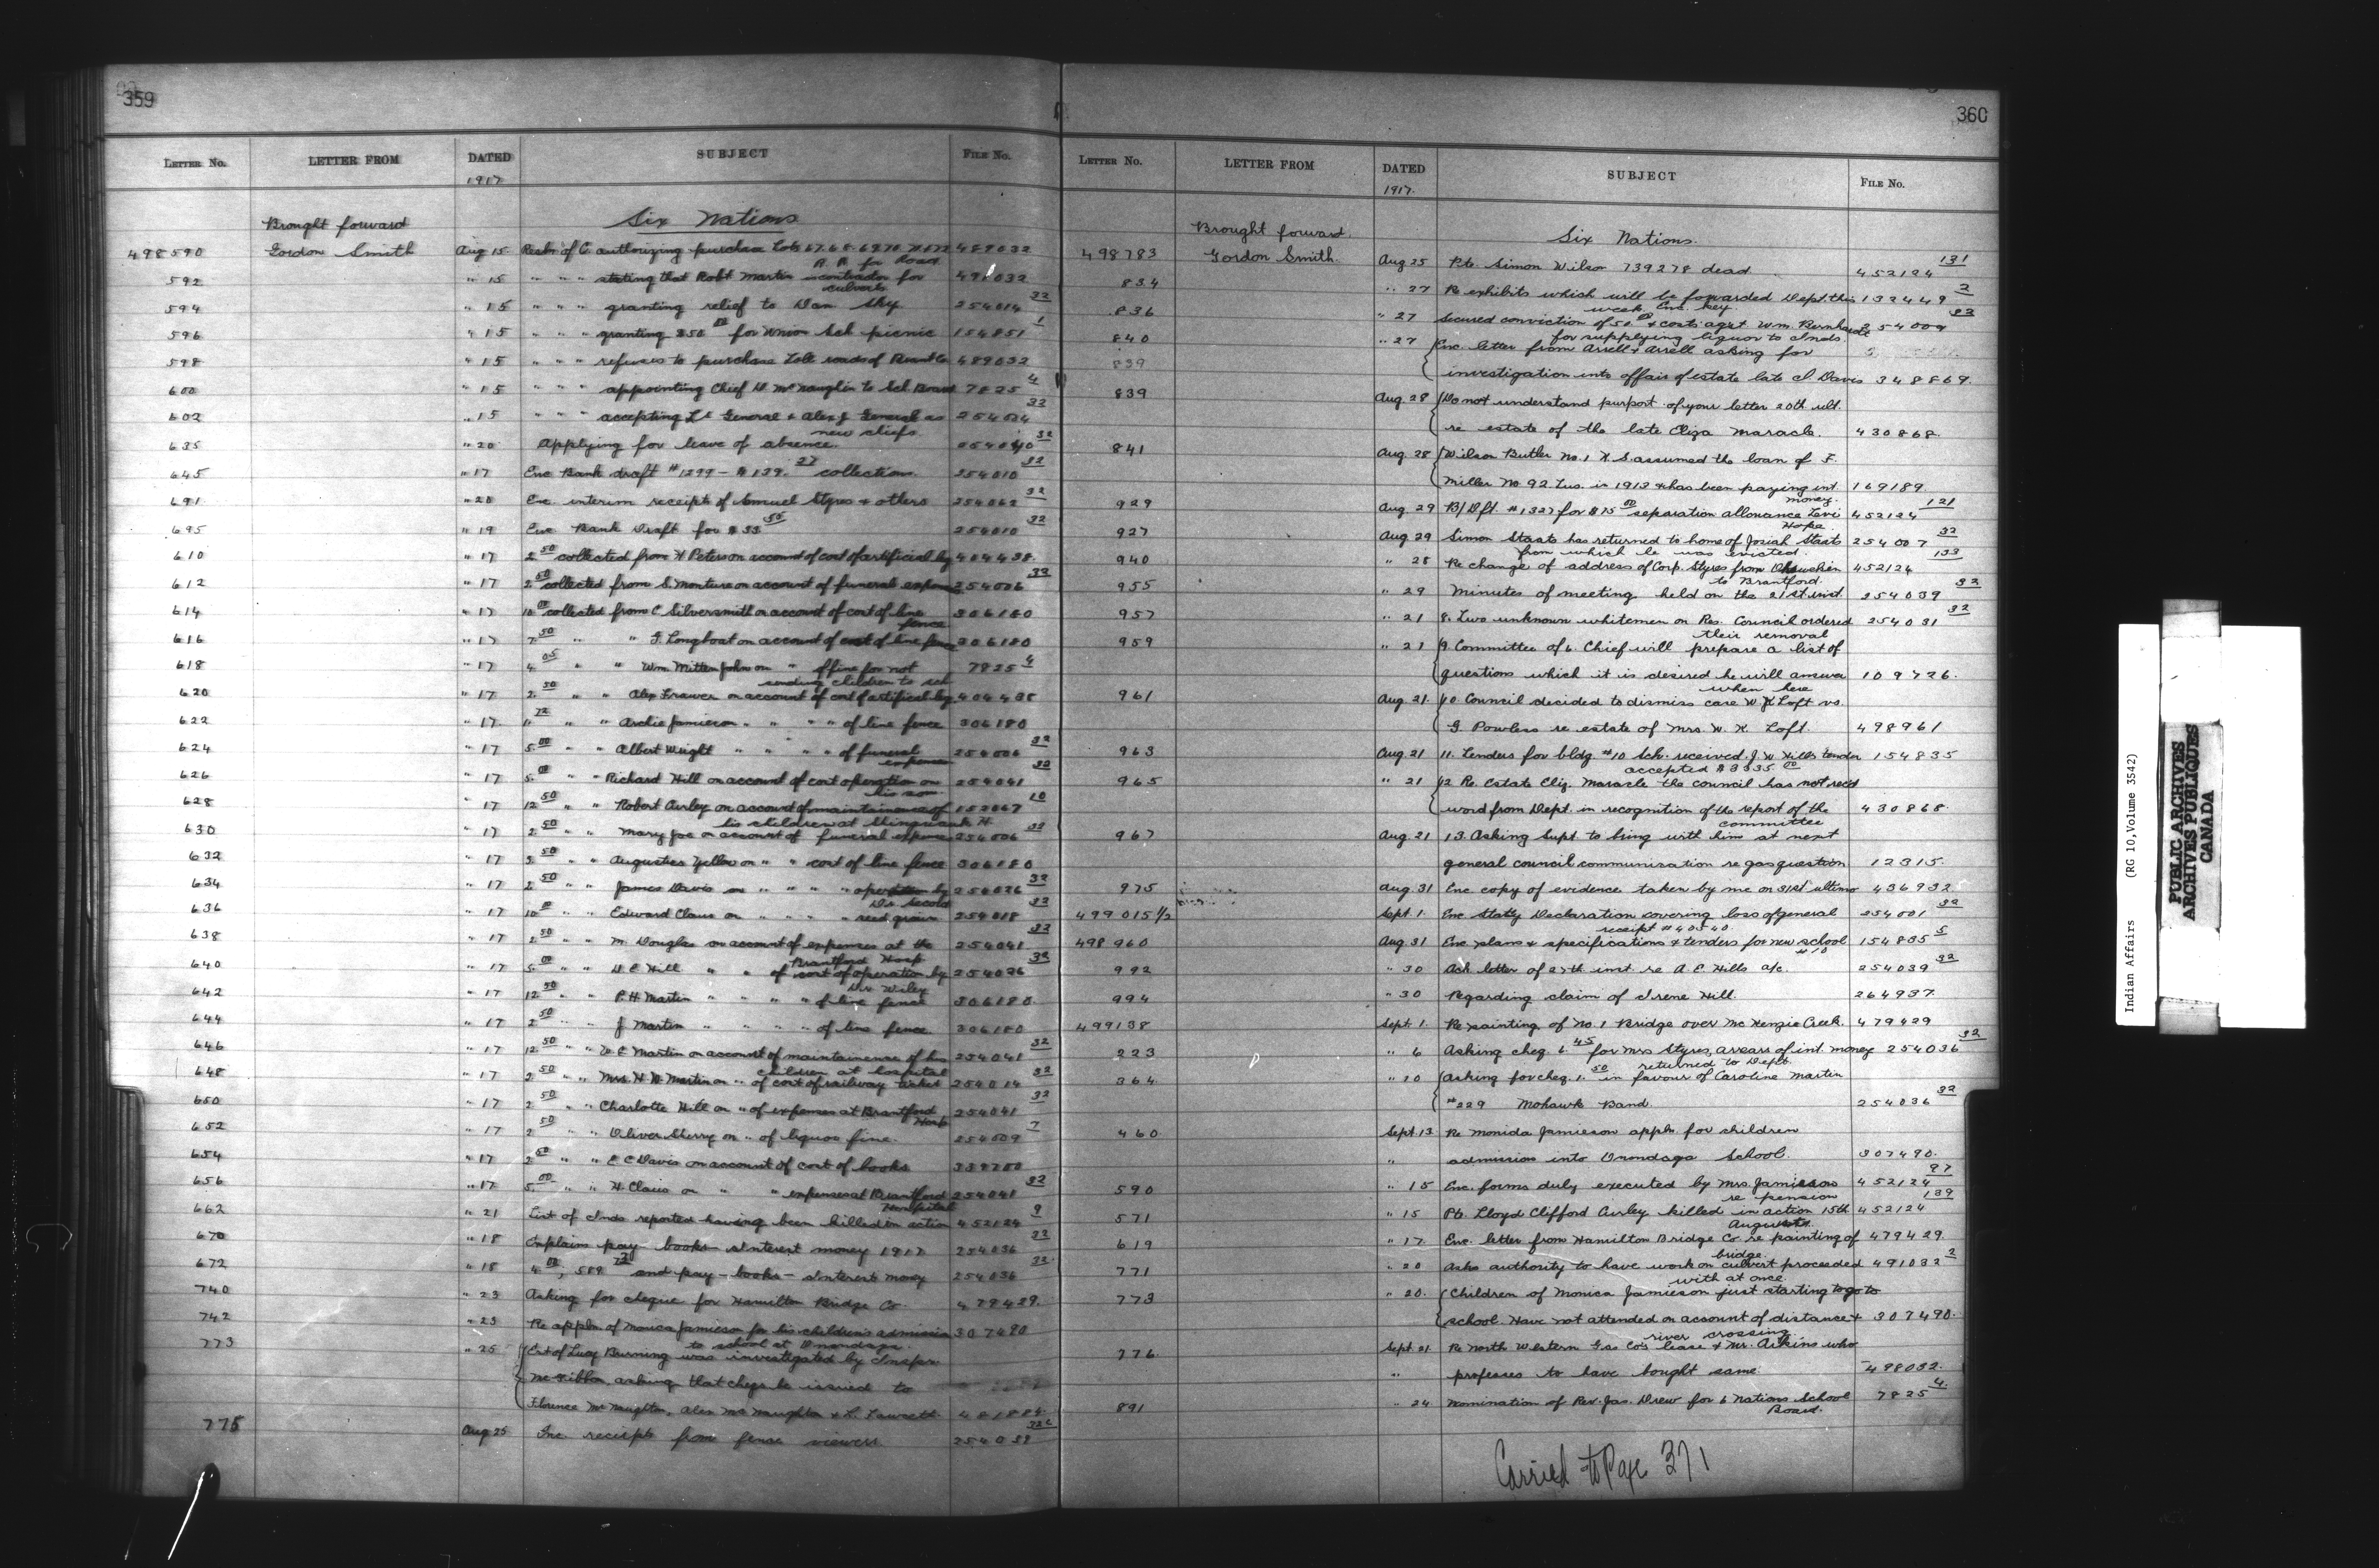 359
LETTER No. LETTER FROM DATED SUBJECT FILE No.
1917
Brought forward Six Nations
498590 Gordon Smith Aug 15 Resln of C. authorizing purchase Lots 67.68.69.70.71.72 489032
R. R. for Road
592 " 15 " " " stating that Robt Martin is contractor for 491032
culverts
594 " 15 " " " granting relief to Dan Sky 254014 32
596 " 15 " " " granting $50 00 for Union Sch picnic 154851 1
598 " 15 " " " refuses to purchase Toll roads of Brant Co 489032
600 " 15 " " " appointing Chief D. McNaughton to Sch Board 7825 4
602 " 15 " " " accepting Lt General & Alex J General as 254024 32
new chiefs
635 " 20 Applying for leave of absence. 32
645 " 17 Enc Bank draft #1299 - $139. 27 collections 254010 32
691 " 20 Enc. interim receipts of Samuel Styres & others 254062 32
695 " 19 Enc Bank Draft for $33 50 254010 32
610 " 17 2 50 collected from H Peters on account of cost of artificial leg 404438
612 " 17 2 50 collected from S. Monture on account of funeral expenses 254006 32
614 " 17 10 00 collected from C Silversmith on account of cost of line 306180
fence
616 " 17 7 50 " " G. Longboat on account of cost of line fence 306180
618 " 17 4 05 " " Wm. Mitten John on " of fine for not 7825 4
sending children to sch
620 " 17 2 50 " " Alex Frawer on account of cost of artificial leg 404438
622 " 17 72 " " Archie Jamieson " " " of line fence 306180
624 " 17 5 00 " " Albert Wright " " " of funeral 254006 32
expenses
626 " 17 5 00 " " Richard Hill on account of cost operation on 254041 32
his son
628 " 17 12 50 " " Robert Curley on account of maintainence of 152067 10
his children at
630 " 17 2 50 " " Mary Joe on account of funeral expenses 254006 32
632 " 17 5 50 " " Augustus Yellow on " " cost of line fence 306180
634 " 17 2 50 " " James Davis on " " " operation by 254026 32
Dr Secord
636 " 17 10 00 " " Edward Claus on " " " seed grain 254018 32
638 " 17 2 50 " " M. Douglas on account of expenses at the 254041 32
Brantford Hosp
640 " 17 5 00 " " D E Hill " " of cost of operation by 254026 32
Dr Wiley
642 " 17 12 50 " " P. H. Martin " " " " of line fence 306180
644 " 17 2 50 " " J Martin " " " " of line fence 306180
646 " 17 12 50 " " W. E Martin on account of maintainense of his 254041 32
children at hospital
648 " 17 2 50 " " Mrs. H W Martin on " of cost of railway ticket 254014 32
650 " 17 2 50 " " Charlotte Hill on " of expenses at Brantford 254041 32
Hosp
652 " 17 2 50 " " Oliver Sherry on " of liquor fine. 254009 7
654 " 17 2 50 " " E C Davis on account of cost of books 339200
656 " 17 5 00 " " H Claus on " " expenses at Brantford 254041 32
Hospital
662 " 21 List of Inds reported having been killed in action 452124 9
670 " 18 Explains pay books interest money 1917 254036 32
672 " 18 and pay-books - interest money 254036 32
740 " 23 Asking for cheque for Hamilton Bridge Co 479429
742 " 23 Re appln of Monica Jamieson for his children's admission 307490
to school at Onondaga.
773 " 25 Est of Lucy Burning was investigated by Inspr.
McGibbon asking that cheqs be issued to
Florence McNaughton, Alex McNaughton & L. Fawcett 481884
775 Aug 25 Inc. receipts from fence viewers 254032 32
360
LETTER No. LETTER FROM DATED SUBJECT FILE No.
1917.
Brought forward. Six Nations.
498783 Gordon Smith. Aug 25 Pte. Simon Wilson 739278 dead. 452124 131
834 " 27 Re exhibits which will be forwarded Dept. this 132449 2
week Enc. key.
836 " 27 Secured conviction of 50 00 & costs agst Wm. Bernhardt 254009 32
for supplying liquor to Inds.
840 " 27 Enc. letter from Arrell & Arrell asking for
839 investigation into affair of estate late J. Davis 348869.
839 Aug 28 Do not understand purport of your letter 20th ult.
re estate of the late Eliza Maracle. 430868.
841 Aug. 28 Wilson Butler No. 1 K. S. assumed the loan of F.
Miller No 92. Tus. in 1913 & has been paying int 169189.
money.
929 Aug. 29 B/Dft. #1327 for $15 00 separation allowance Levi 452124 121
Hope.
927 Aug 29 Simon Staats has returned to home of Josiah Staats 254007 32
from which he was evicted.
940 " 28 Re change of address of Corp. Styres from Ohsweken 452124 133
to Brantford.
955 " 29 Minutes of meeting held on the 21st. inst. 254039 32
957 " 21 8. Two unknown whitemen on Res. Council ordered 254031 32
their removal
959 " 21 9. Committee of 6. Chief will prepare a list of
questions which it is desired he will answer 109726.
when here
961 Aug. 21 10. Council decided to dismiss case W K Loft vs.
G Powless re estate of Mrs. W. K. Loft. 498961
963 Aug. 21 11. Tenders for bldg #10 Sch. received. J. W. Hills tender 154835
accepted $3335 00
965 " 21 12 Re. Estate Eliz. Maracle the council has not recd
word from Dept. in recognition of the report of the 430868.
committee
967 Aug. 21 13. Asking Supt to bring with him at next
general council communication re gas question 12315.
975 Aug. 31 Enc copy of evidence taken by me on 31st ultimo 436932.
499015 1/2 Sept. 1. Enc Staty Declaration covering loss of general 254001 32
receipt #40540.
498960 Aug. 31 Enc plans & specifications & tenders for new school 154835 5
#10
992 " 30 Ack letter of 27th inst. re A. E. Hills a/c. 254039 32
994 " 30 Regarding claim of Irene Hill. 264937.
499138 Sept. 1. Re painting of No. 1 Bridge over McKenzie Creek. 479429
223 " 6 Asking cheq 6. 45 for Mrs Styres, arrears of int. money 254036 32
returned to Dept.
364 " 10 Asking for cheq. 1. 50 in favour of Caroline Martin
#229 Mohawk Band. 254036 32
460 Sept. 13 Re Monida Jamieson appln for children
" admission into Onondaga School. 307490.
590 " 15 Enc. forms duly executed by Mrs. Jamieson 452124 97
re pension
571 " 15 Pte. Lloyd Clifford Curley killed in action 15th 452124 139
August.
619 " 17 Enc. letter from Hamilton Bridge Co re painting of 479429.
bridge.
771 " 20 Asks authority to have work on culvert proceeded 491032 2
with at once
773 " 20. Children of Monica Jamieson just starting to go to
school Have not attended on account of distance & 307490.
river crossing.
776 Sept 21 Re North Western Gas Co's lease & Mr. Askins who
" professes to have bought same. 498032.
891 " 24 Nomination of Rev. Jas. Drew for 6 Nations School 7825 4
Board.
Carried to Page 371
Indian Affairs (RG 10, Volume 3542)
PUBLIC ARCHIVES
ARCHIVES PUBLIQUES
CANADA